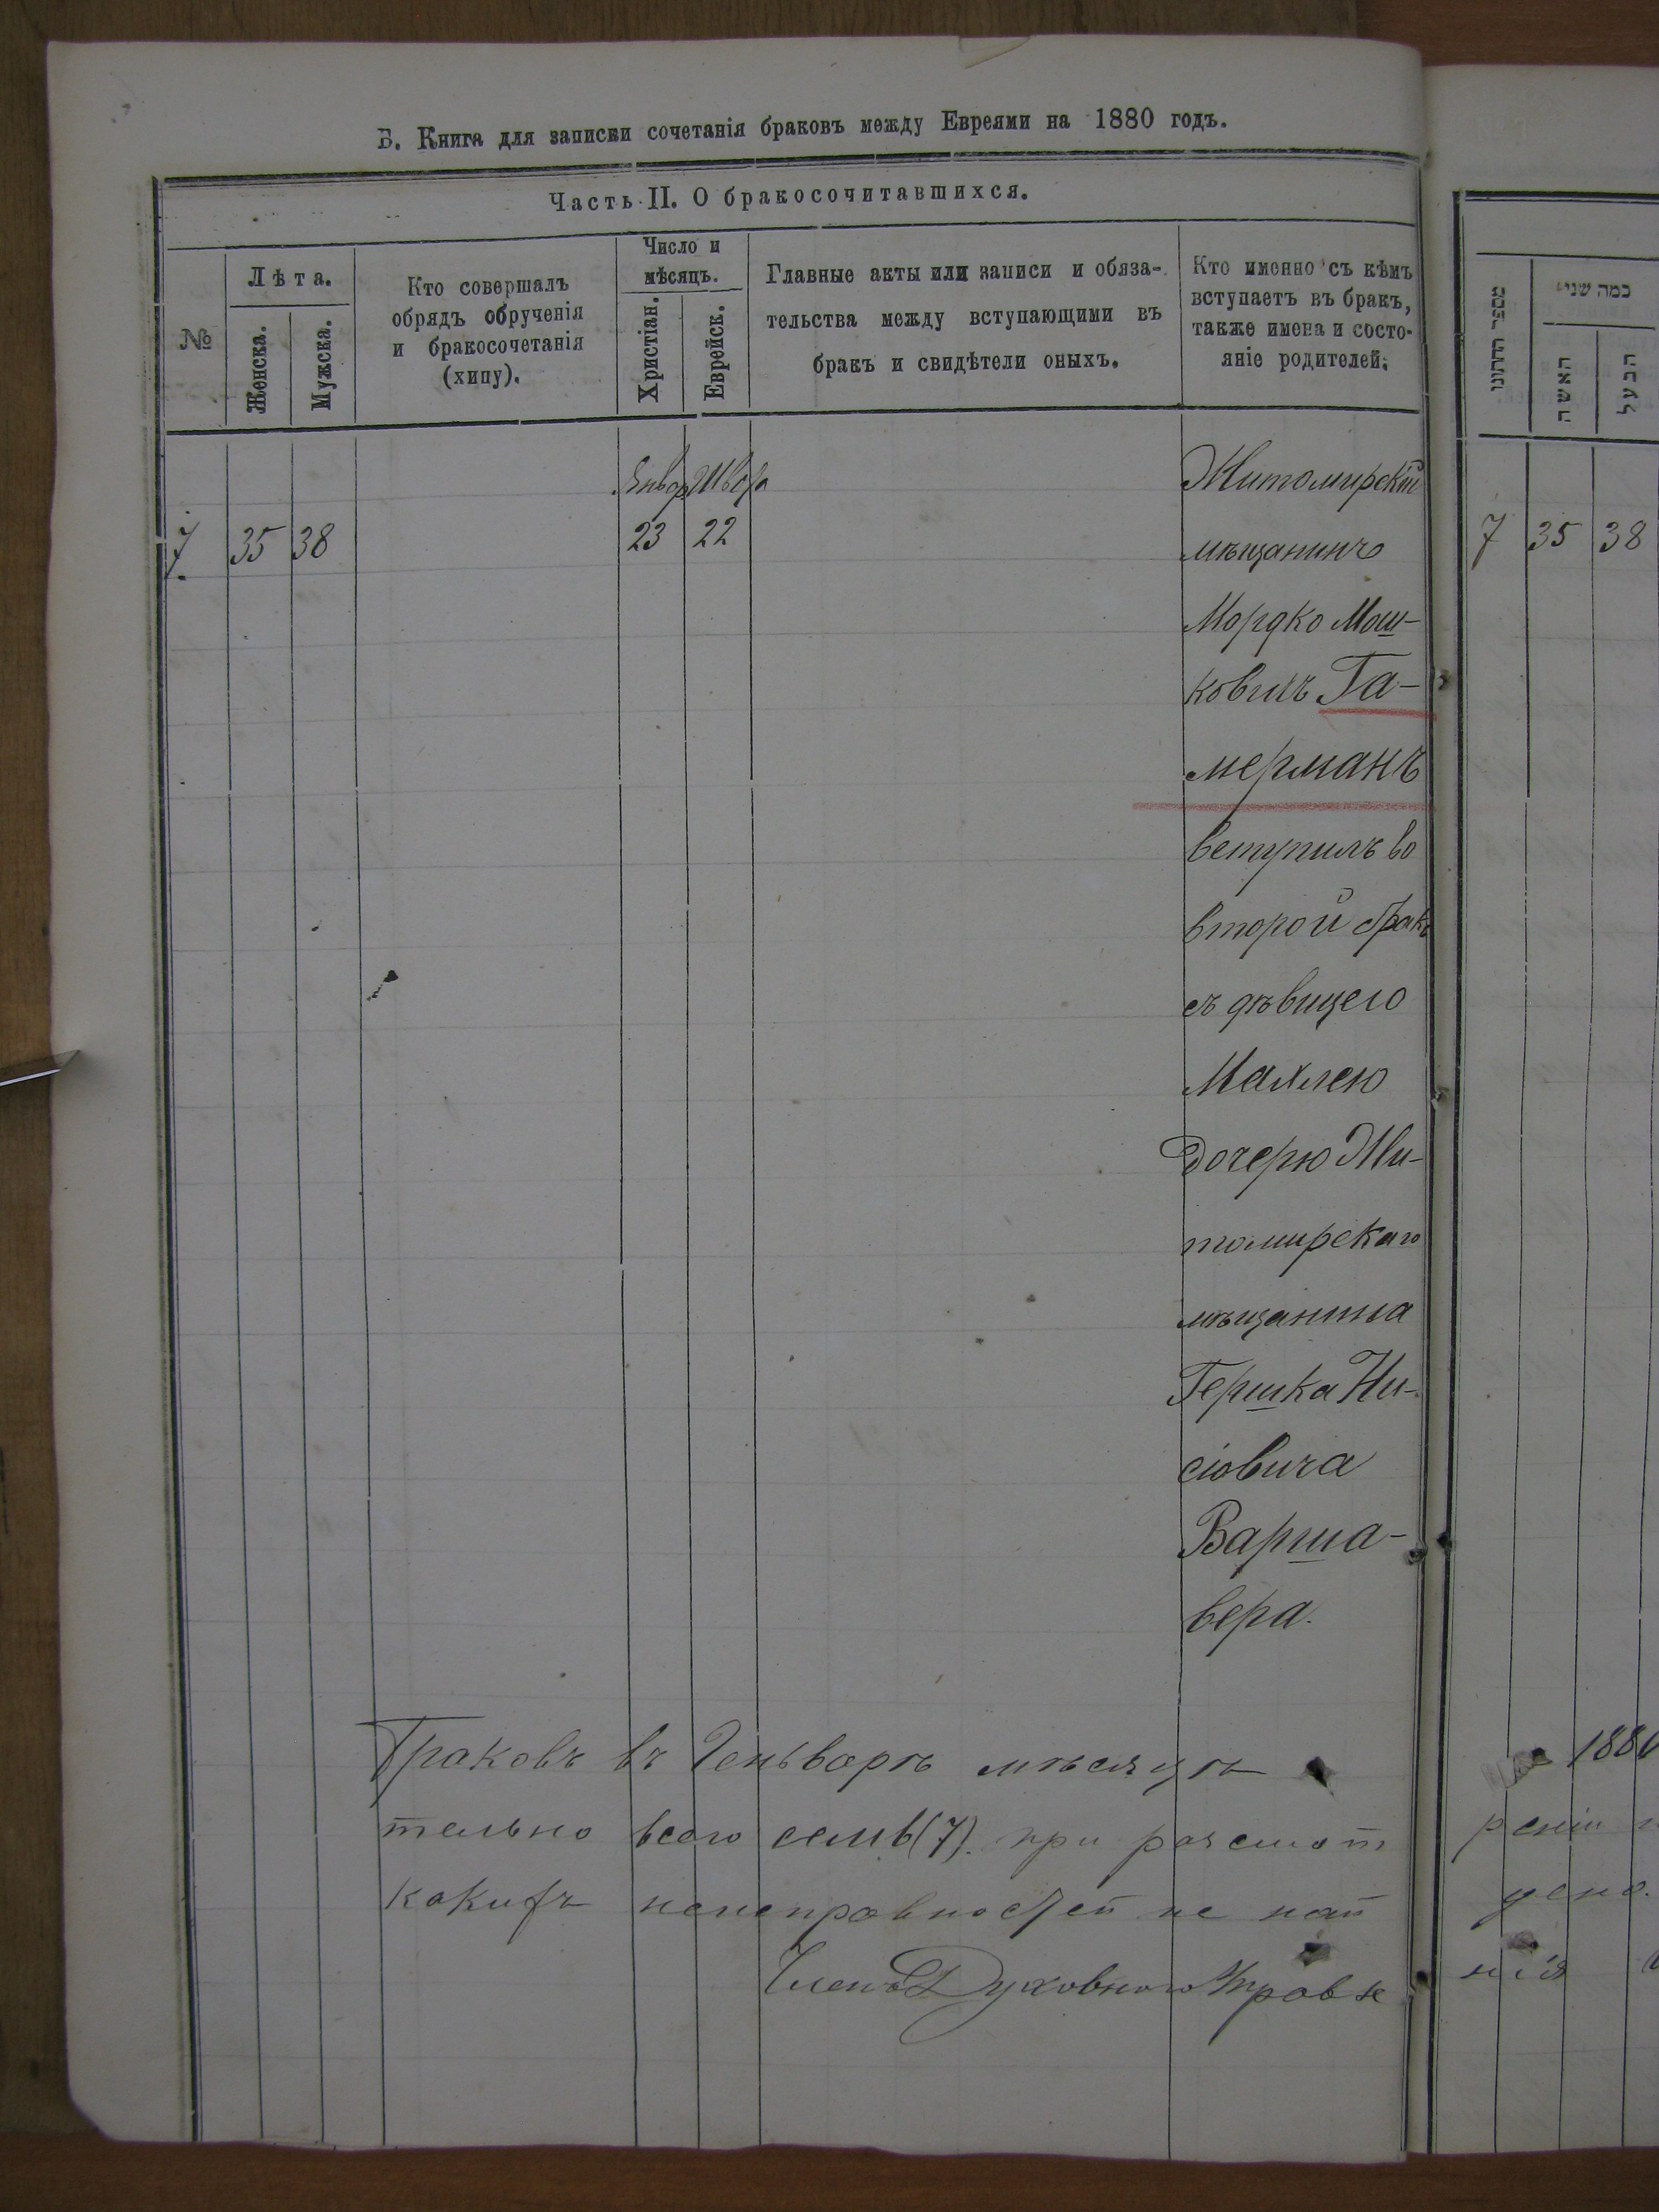 Б. Книга для записки сочетанія браковъ между Евреями на 1880 годъ.
Часть II. О бракосочитавшихся.
№
Лѣта.
Женска.
Мужска.
Кто совершалъ
обрядъ обрученія
и бракосочетанія
(хипу).
Число и
мѣсяцъ.
Христіан.
Еврейск.
Главные акты или записи и обяза-
тельства между вступающими въ
бракъ и свидѣтели оныхъ.
Кто именно съ кѣмъ
вступаетъ въ бракъ,
также имена и состо-
яніе родителей.
Январ Швота
7 35 38 23 22
Житомирскій
мѣщанинъ
Мордко Мош-
ковичъ Га-
мерманъ
вступилъ во
второй бракъ
съ дѣвицею
Махлею
дочерю Жи-
томирскаго
мѣщанина
Гершка Ни-
сіовича
Варша-
вера.
Браковъ въ Генварѣ мѣсяцѣ
тельно всего семь (7). при разсмот
какихъ неисправностей не най
Членъ Духовного Правле
מספר החתונו
כמה שני'
האשה
הבעל
7 35 38
1880
реніи
дено.
нія